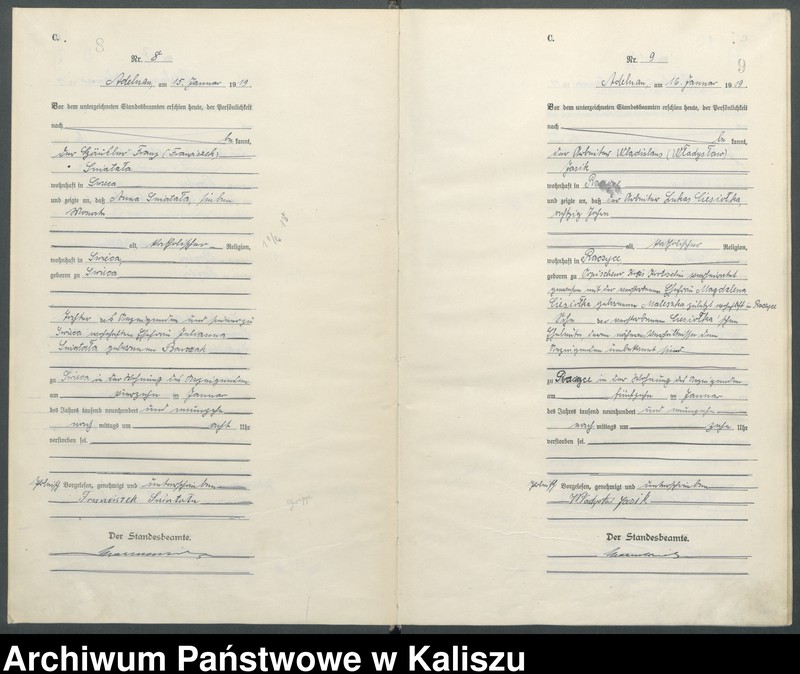 C.
8
Nr. 8
Adelnau, am 15. Januar 1919.
Vor dem unterzeichneten Standesbeamten erschien heute, der Persönlichkeit
nach
be kannt,
der Häusler Franz (Franciszek)
Smiatała
wohnhaft in Swieca
und zeigte an, daß Anna Smiatała, sieben
Monate
alt, katholischer Religion,
wohnhaft in Swieca,
geboren zu Swieca
Tochter des Anzeigenden und seiner zu
Swieca wohnhaften Ehefrau Julianna
Smiatała geborenen
zu Swieca in der Wohnung des Anzeigenden
am vierzehn ten Januar
des Jahres tausend neunhundert und neunzehn
nach mittags um acht Uhr
verstorben sei.
Vorgelesen, genehmigt und unterschrieben
Franciszek Smiatała
Der Standesbeamte.
C.
9
Nr. 9
Adelnau, am 16. Januar 1919.
Vor dem unterzeichneten Standesbeamten erschien heute, der Persönlichkeit
nach
be kannt,
der Arbeiter Wladislaus (Władysław)
Jasik
wohnhaft in
und zeigte an, daß der Arbeiter Lukas Ciesiołka,
achtzig Jahre
alt, katholischer Religion,
wohnhaft in Raczyce
geboren zu Kreis Krotoschin verheiratet
gewesen mit der verstorbenen Ehefrau Magdalena
Ciesiołka geborenen Maleszka zuletzt wohnhaft in Raczyce
Sohn der verstorbenen Ciesiołka'schen
Eheleute, deren nähere Verhältnisse dem
Anzeigenden unbekannt sind
zu Raczyce in der Wohnung des Anzeigenden
am fünfzehn ten Januar
des Jahres tausend neunhundert und neunzehn
nach mittags um zehn Uhr
verstorben sei.
Vorgelesen, genehmigt und unterschrieben
Władysław Jasik
Der Standesbeamte.
Archiwum Państwowe w Kaliszu